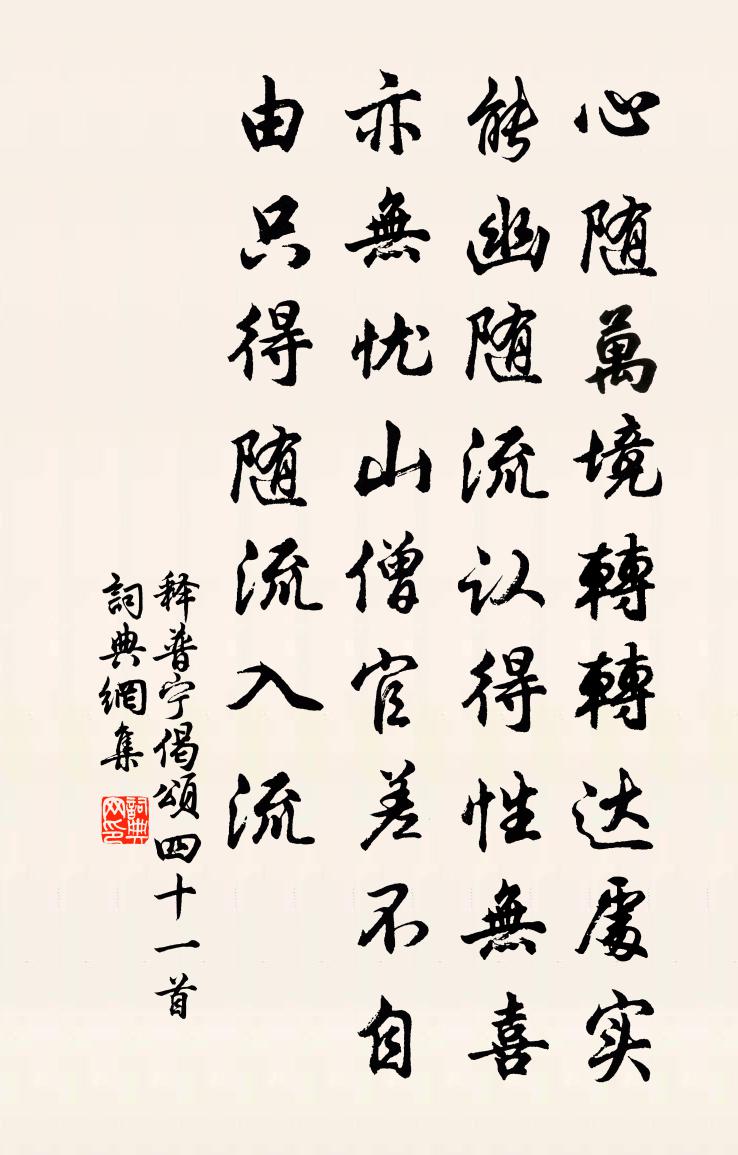 心随萬境轉轉达處实
能幽随流认得性無喜
亦無忧山僧官差不自
由只得随流入流
释普宁偈頌四十一首
詞典網集
詞典网印